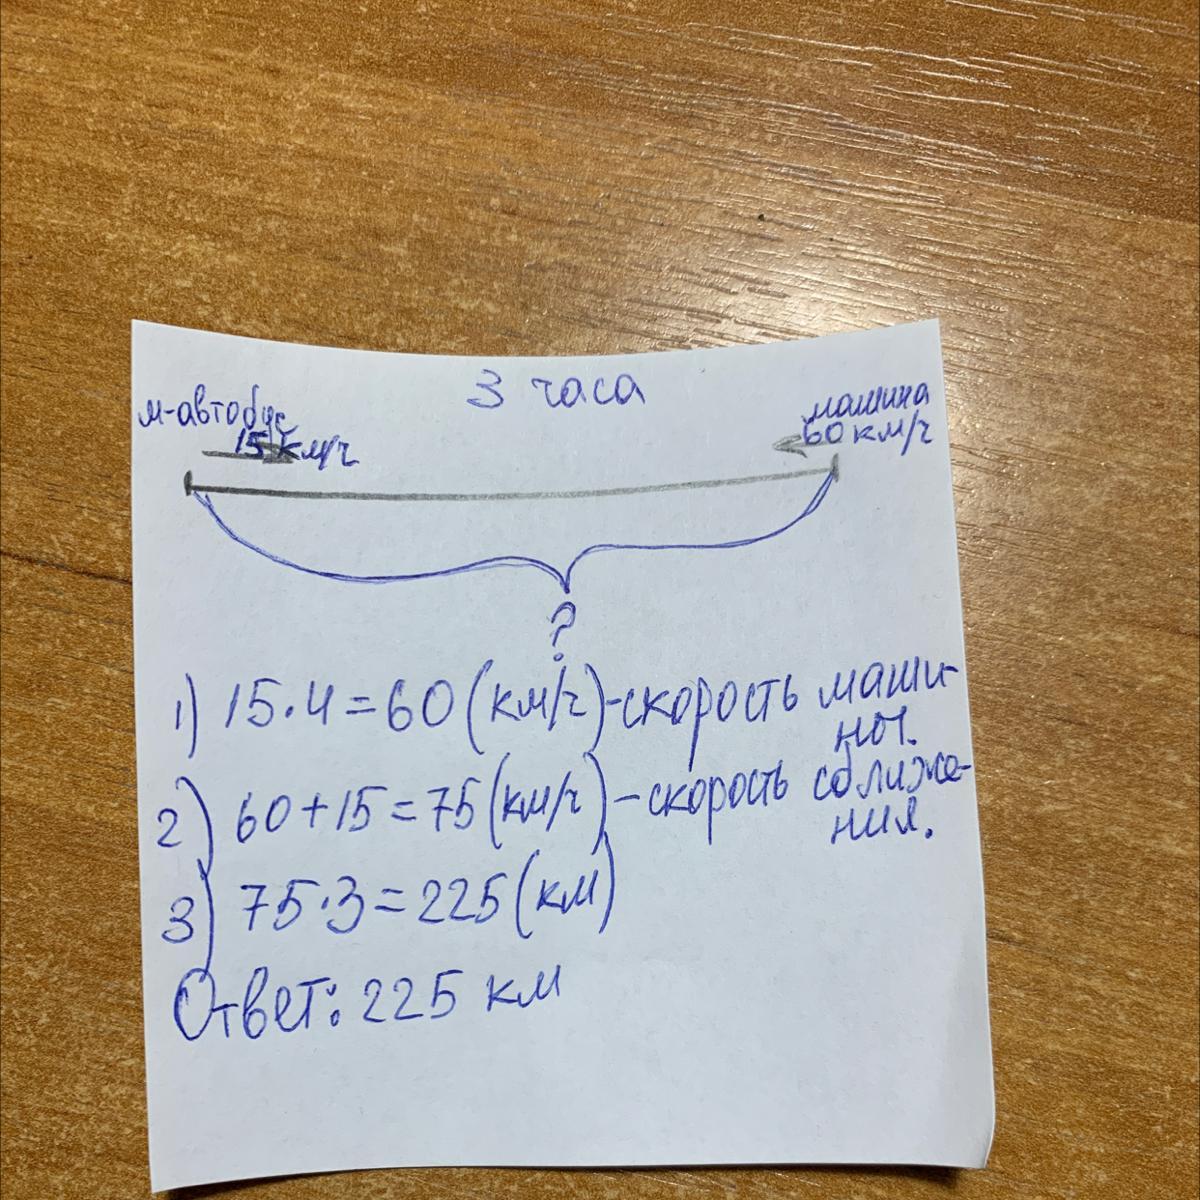 3 часа
м-автобус
15 км/ч
машина
60 км/ч
?
1) 15·4=60 (км/ч)-скорость маши-
ны.
2) 60+15=75 (км/ч) - скорость сближе-
ния.
3) 75·3=225 (км)
Ответ: 225 км